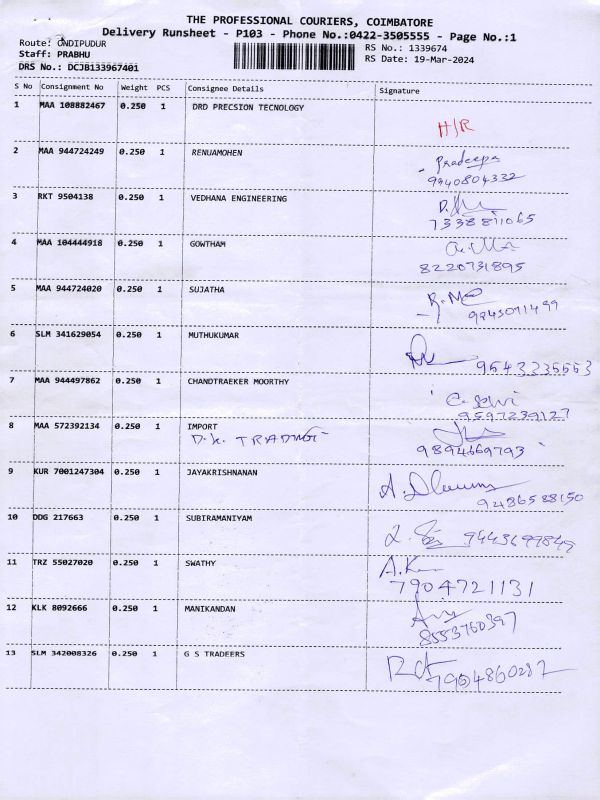 THE PROFESSIONAL COURIERS, COIMBATORE
Delivery Runsheet - P103 - Phone No.:0422-3505555 - Page No.:1
Route: ONDIPUDUR
RS No.: 1339674
Staff: PRABHU
RS Date: 19-Mar-2024
DRS No.: DCJB133967401
S No Consignment No Weight PCS Consignee Details Signature
1 MAA 108882467 0.250 1 DRD PRECSION TECNOLOGY
H/R
2 MAA 944724249 0.250 1 RENUAMOHEN
Pradeepa
9940804332
3 RKT 9504138 0.250 1 VEDHANA ENGINEERING
7338811065
4 MAA 104444918 0.250 1 GOWTHAM
8220731895
5 MAA 944724020 0.250 1 SUJATHA
6 SLM 341629054 0.250 1 MUTHUKUMAR
7 MAA 944497862 0.250 1 CHANDTRAEKER MOORTHY
9597239127
8 MAA 572392134 0.250 1 IMPORT
9894669793
9 KUR 7001247304 0.250 1 JAYAKRISHNANAN
9486588150
10 DDG 217663 0.250 1 SUBIRAMANIYAM
9443699849
11 TRZ 55027020 0.250 1 SWATHY
7904721131
12 KLK 8092666 0.250 1 MANIKANDAN
8553760397
13 SLM 342008326 0.250 1 G S TRADEERS